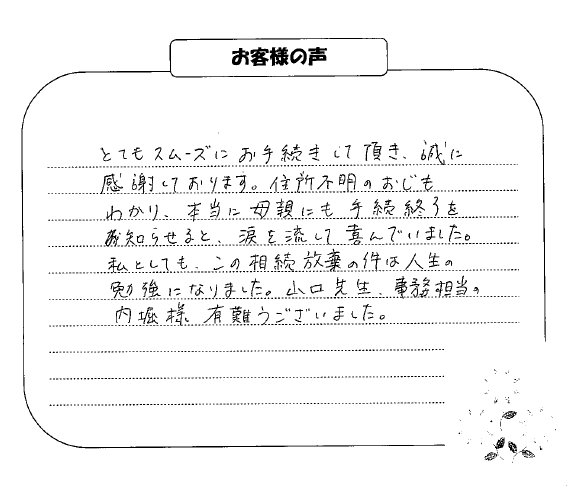 お客様の声
とてもスムーズにお手続きして頂き、誠に
感謝しております。住所不明のおじも
わかり、本当に母親にも手続終了を
お知らせると、涙を流して喜んでいました。
私としても、この相続放棄の件は人生の
勉強になりました。山口先生、事務担当の
内堀様、有難うございました。